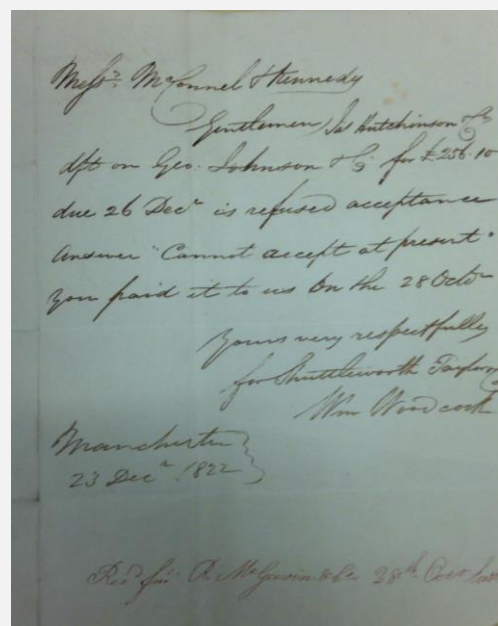 Messrs. McConnel & Kennedy
Gentlemen, Jas Hutchinson & Co
dft on Geo. Johnson & Co. for £256.10
due 26 Decr is refused acceptance
Answer "Cannot accept at present"
You paid it to us on the 28 Octr
Yours very respectfully
for Shuttleworth Taylor
Wm Woodcock
Manchester
23 Decr. 1822
Recd from R. McGavin & Co 28th